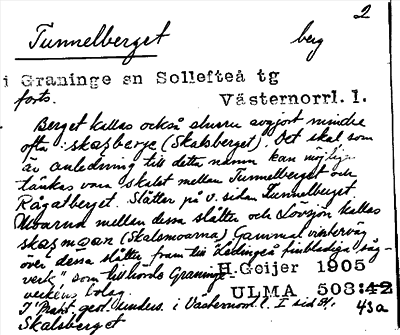 2
Tunnelberget berg
i Graninge sn Sollefteå tg
forts. Västernorrl. l.
Berget kallas också ehuru avgjort mindre
ofta: skaşberje (Skalsberget). Det skal som
är anledning till detta namn kan möjligen
tänkas vara skalet mellan Tunnelberget och
Rågatberget. Slätter på v. sidan Tunnelberget
Moarna mellan dessa slåtter och Lövsjön kallas
skaşmoan (Skalsmoarna) Gammal vinterväg
över dessa slåtter fram till finbladiga såg-
verk" som tillhörde Graninge
verkens bolag. H.Geijer 1905
ULMA 508:42
I "Prakt. geol. unders. i Västernorrl. l. I sid 84. 43a
Skalsberget